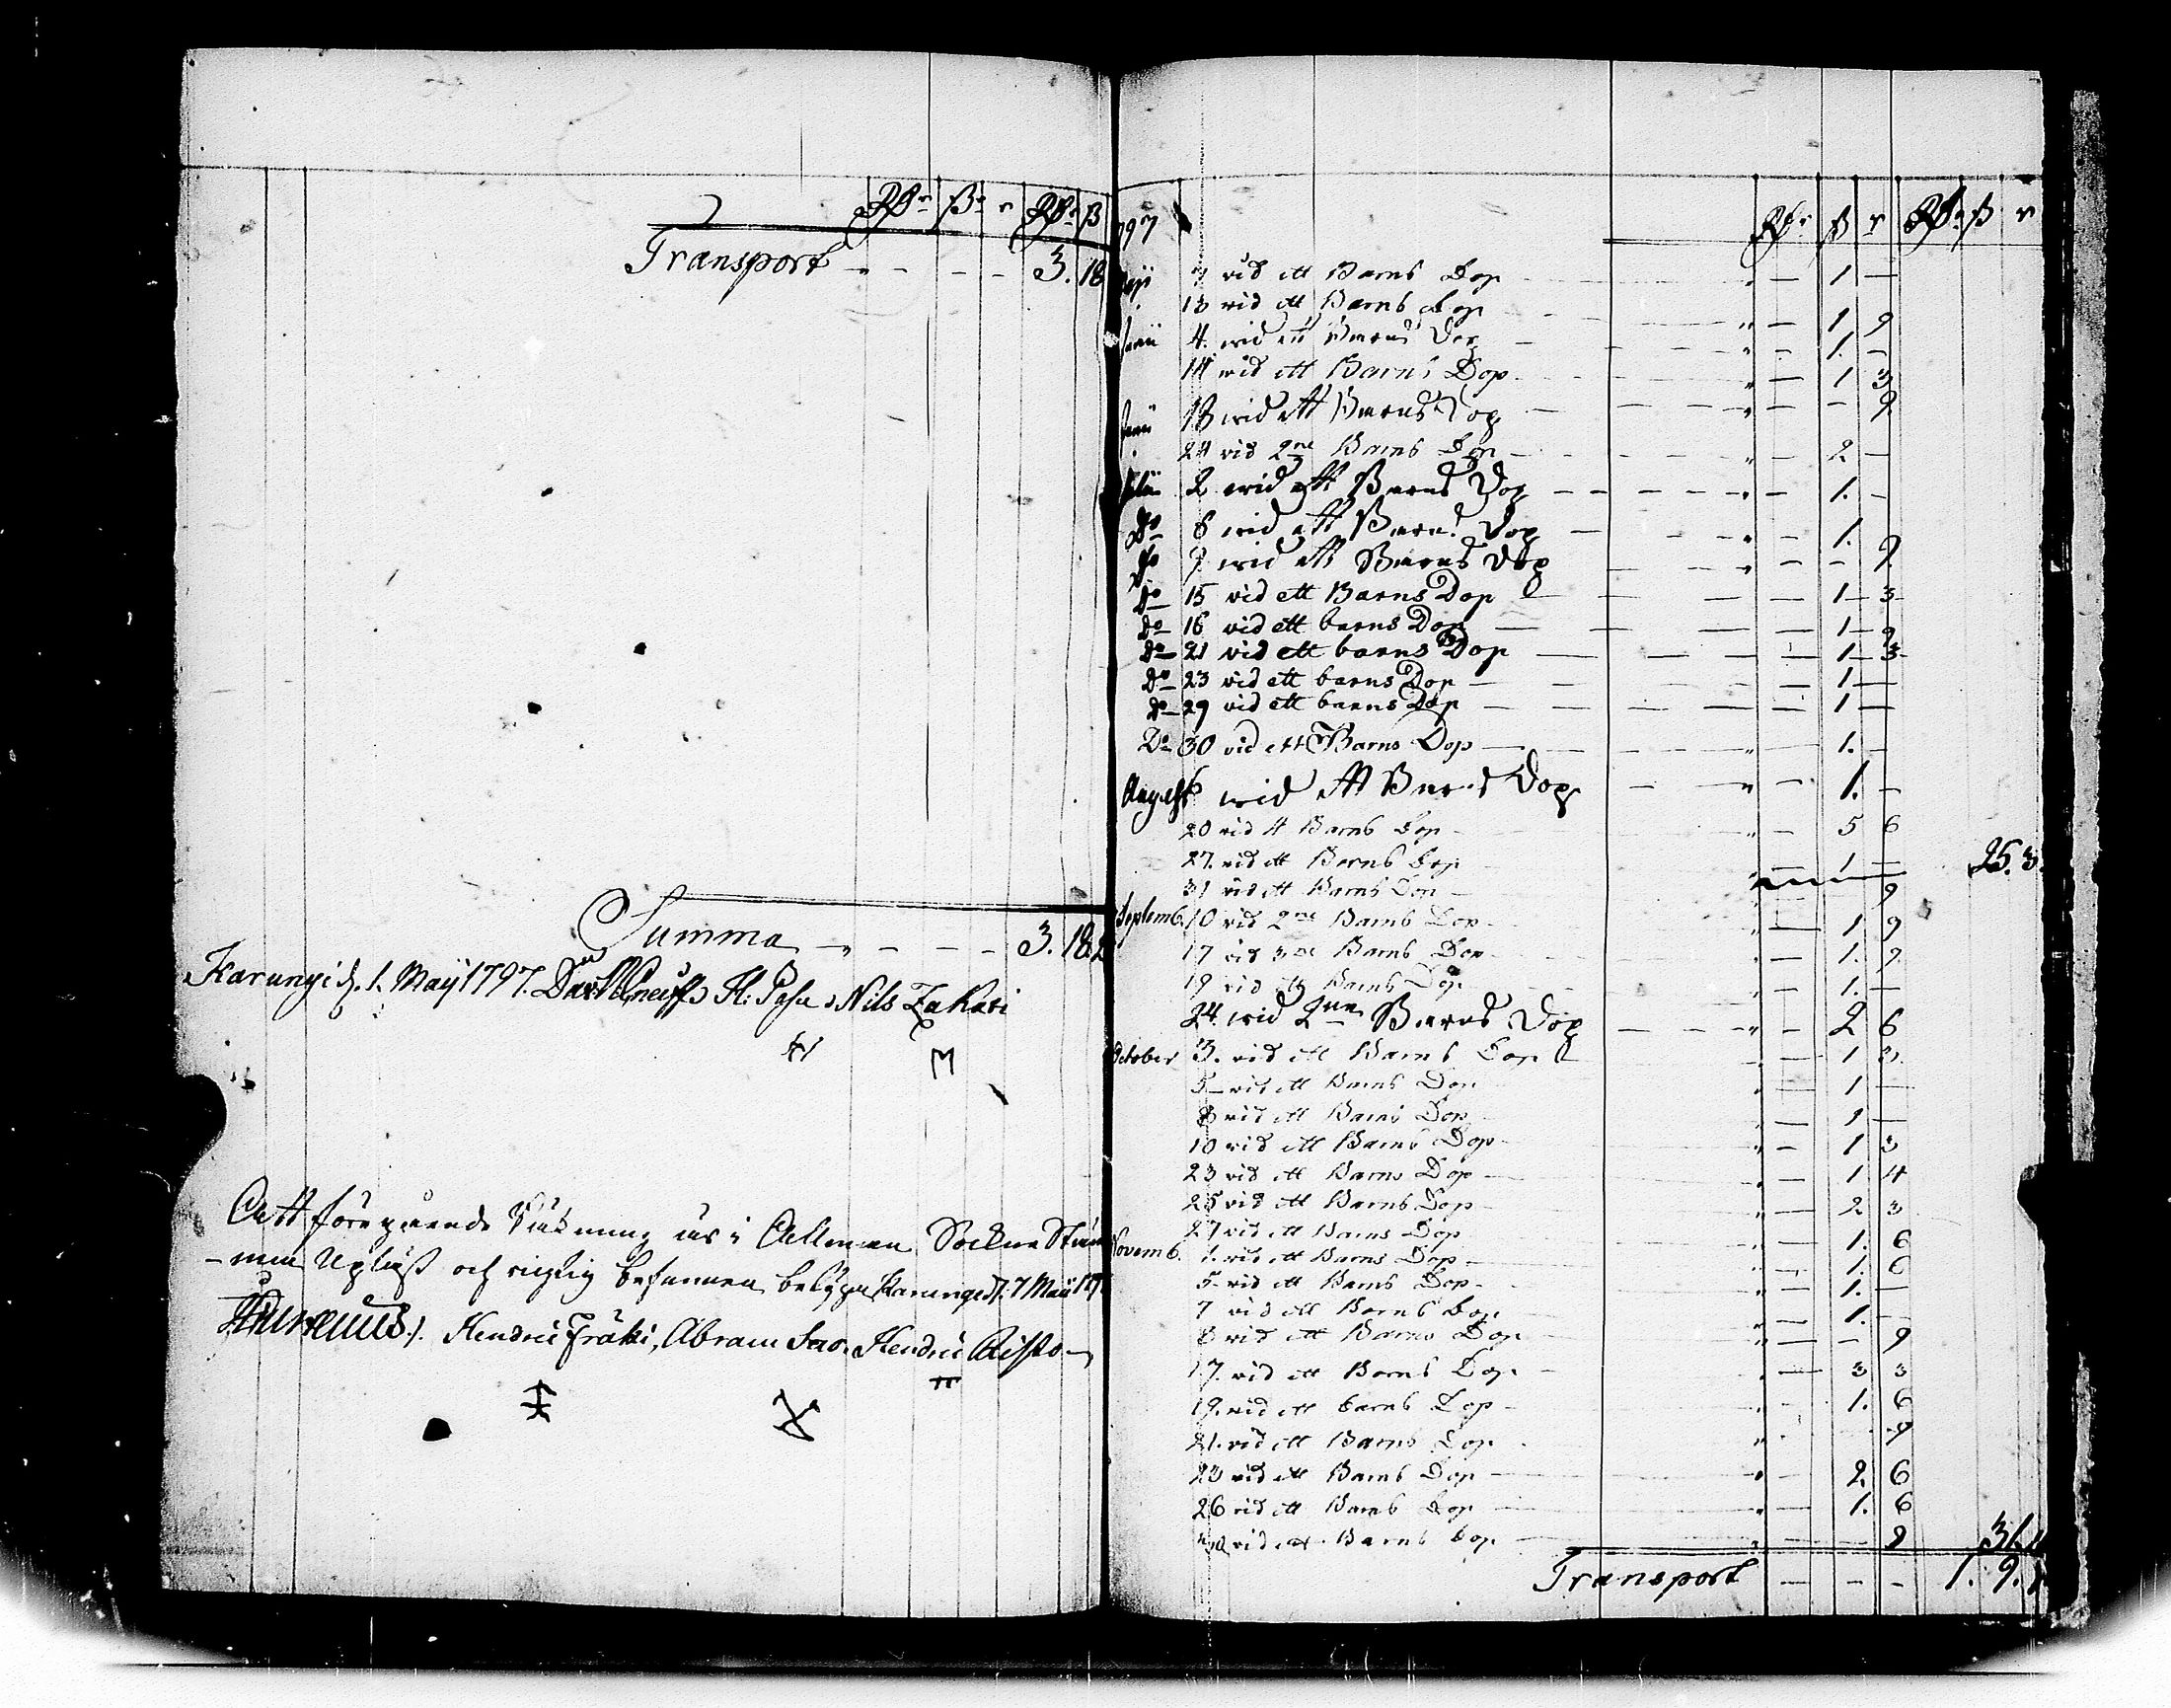 Rdr ß r Rdr ß
Transport - - - - 3. 18
Summa - - - - 3. 18.
Karungi d. 1. Maij 1797. H: Pasa Nils Zakari
Att föregående Räkning är i Allmän Sockne Stäm
-man Upläst och richtig befunnen betyga Karungi d. 7 Maij 179
Hendric Fräki, Abram Hendric Aisto
797 Rdr ß r Rdr ß r
7 vid ett Barns Dop 1 -
13 vid ett Barns Dop 1 9
Junii 4. wid ett Barns Dop 1. -
14 wid ett Barns Dop 1 3
Junii 18 wid ett Barns Dop - 9
24 vid 2ne Barns Dop 2 -
2 wid ett Barns Dop 1. -
Do 6 wid ett Barns Dop 1.
Do 9 wid ett Barns Dop - 9
Do 15 vid ett Barns Dop 1 3
Do 16 vid ett barns Dop 1 9
Do 21 vid ett barns Dop 1 3
Do 23 vid ett barns Dop 1 -
Do 29 vid ett barns Dop 1 -
Do 30 vid ett Barns Dop 1. -
August 6 wid ett Barns Dop 1. -
20 vid 4 Barns Dop 5 6
27. vid ett Barns Dop 1 - 25. 3.
31 vid ett Barns Dop 9
Septemb. 10 vid 2ne Barns Dop 1 9
17 vid 2ne Barns Dop 1. 9
19 vid ett Barns Dop 1. -
24. wid 2ne Barns Dop 2 6
October 3. vid ett Barns Dop 1 3
5 vid ett Barns Dop 1 -
8 vid ett Barns Dop 1 -
10 vid ett Barns Dop 1 3
23 vid ett Barns Dop 1 4
25 vid ett Barns Dop 2 3
27 vid ett Barns Dop 1. 6
Novemb. 1. vid ett Barns Dop 1. 6
5 vid ett Barns Dop 1. -
7 vid ett Barns Dop 1. -
8 vid ett Barns Dop - 9
17. vid ett Barns Dop 3 3
19. vid ett barns Dop 1. 6
21. vid ett Barns Dop 9
23 vid ett Barns Dop 2. 6
26 vid ett Barns Dop 1. 6
30 vid ett Barns Dop 9 31.
Transport - - - 1. 9.